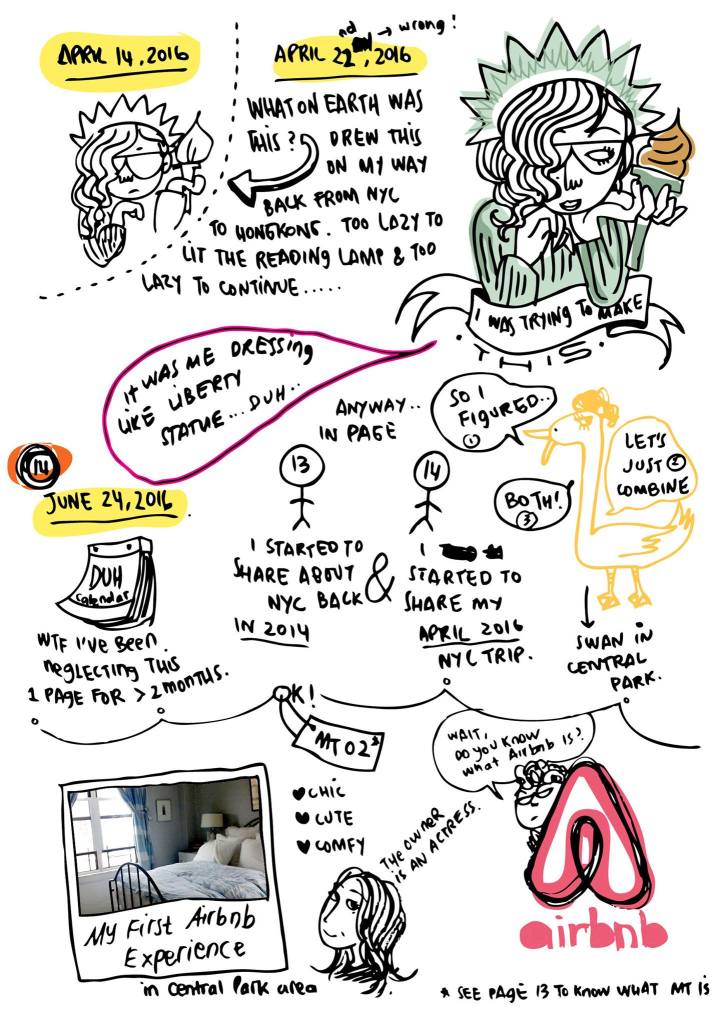 APRIL 14, 2016
nd → wrong!
APRIL 22, 2016
WHAT ON EARTH WAS
THIS? DREW THIS
ON MY WAY
BACK FROM NYC
TO HONGKONG. TOO LAZY TO
LIT THE READING LAMP & TOO
LAZY TO CONTINUE.....
I WAS TRYING TO MAKE
THIS.
IT WAS ME DRESSING
LIKE LIBERTY
STATUE... DUH..
ANYWAY..
IN PAGE
SO I
FIGURED..
1
LET'S
JUST 2
COMBINE
BOTH!
3
14
JUNE 24, 2016
DUH
calendar
WTF I'VE BEEN
NEGLECTING THIS
1 PAGE FOR > 2 MONTHS.
13
I STARTED TO
SHARE ABOUT
NYC BACK
IN 2014
&
14
I
STARTED TO
SHARE MY
APRIL 2016
NYC TRIP.
SWAN IN
CENTRAL
PARK.
OK!
MT 02*
WAIT,
DO YOU KNOW
what Airbnb is?
CHIC
CUTE
COMFY
THE OWNER
IS AN ACTRESS.
airbnb
My First Airbnb
Experience
in Central Park area
* SEE PAGE 13 TO KNOW WHAT MT IS